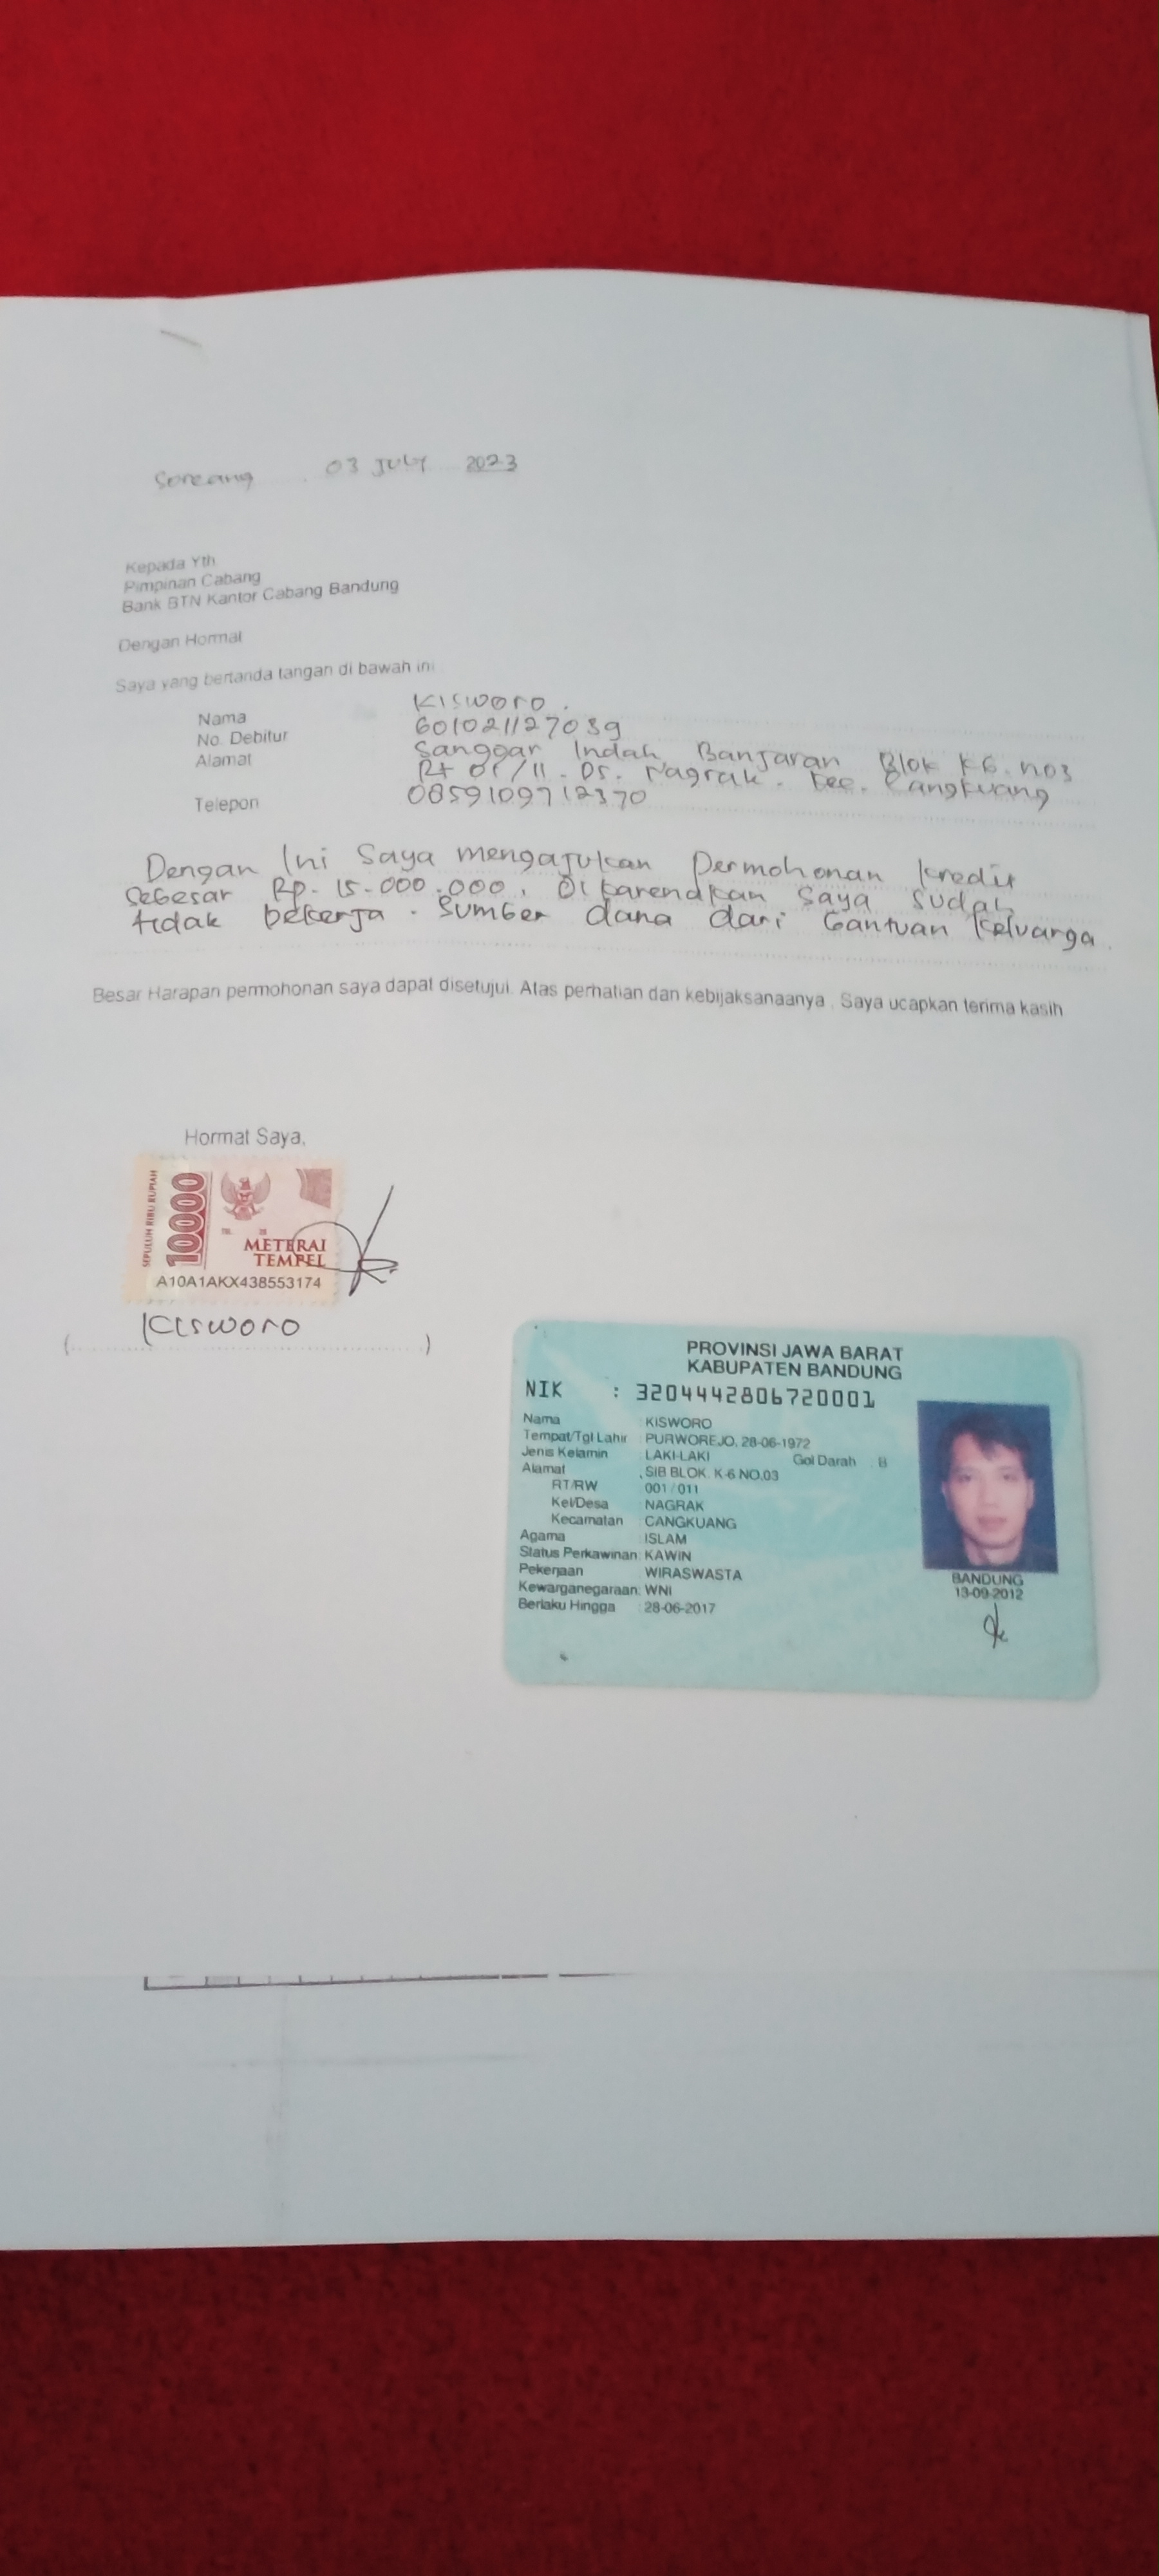 Soreang 03 JULY 2023
Kepada Yth
Pimpinan Cabang
Bank BTN Kantor Cabang Bandung
Dengan Hormat
Saya yang bertanda tangan di bawah ini
Nama Kisworo.
No. Debitur 601021127039
Alamat Sanggar Indah Banjaran Blok K6. no3
Rt 01/11. Ds. Nagrak. Kec. Cangkuang
Telepon 0859109712370
Dengan Ini Saya mengajukan Permohonan kredit
sebesar Rp. 15.000.000, Dikarenakan saya sudah
tidak bekerja. Sumber dana dari bantuan keluarga.
Besar Harapan permohonan saya dapat disetujui. Atas perhatian dan kebijaksanaanya . Saya ucapkan terima kasih
Hormat Saya,
SEPULUH RIBU RUPIAH
10000
METERAI
TEMPEL
A10A1AKX438553174
(Kisworo)
PROVINSI JAWA BARAT
KABUPATEN BANDUNG
NIK : 3204442806720001
Nama : KISWORO
Tempat/Tgl Lahir : PURWOREJO, 28-06-1972
Jenis Kelamin : LAKI-LAKI Gol Darah : B
Alamat : SIB BLOK. K-6 NO.03
RT/RW : 001 / 011
Kel/Desa : NAGRAK
Kecamatan : CANGKUANG
Agama : ISLAM
Status Perkawinan: KAWIN
Pekerjaan : WIRASWASTA
Kewarganegaraan: WNI
Berlaku Hingga : 28-06-2017
BANDUNG
13-09-2012